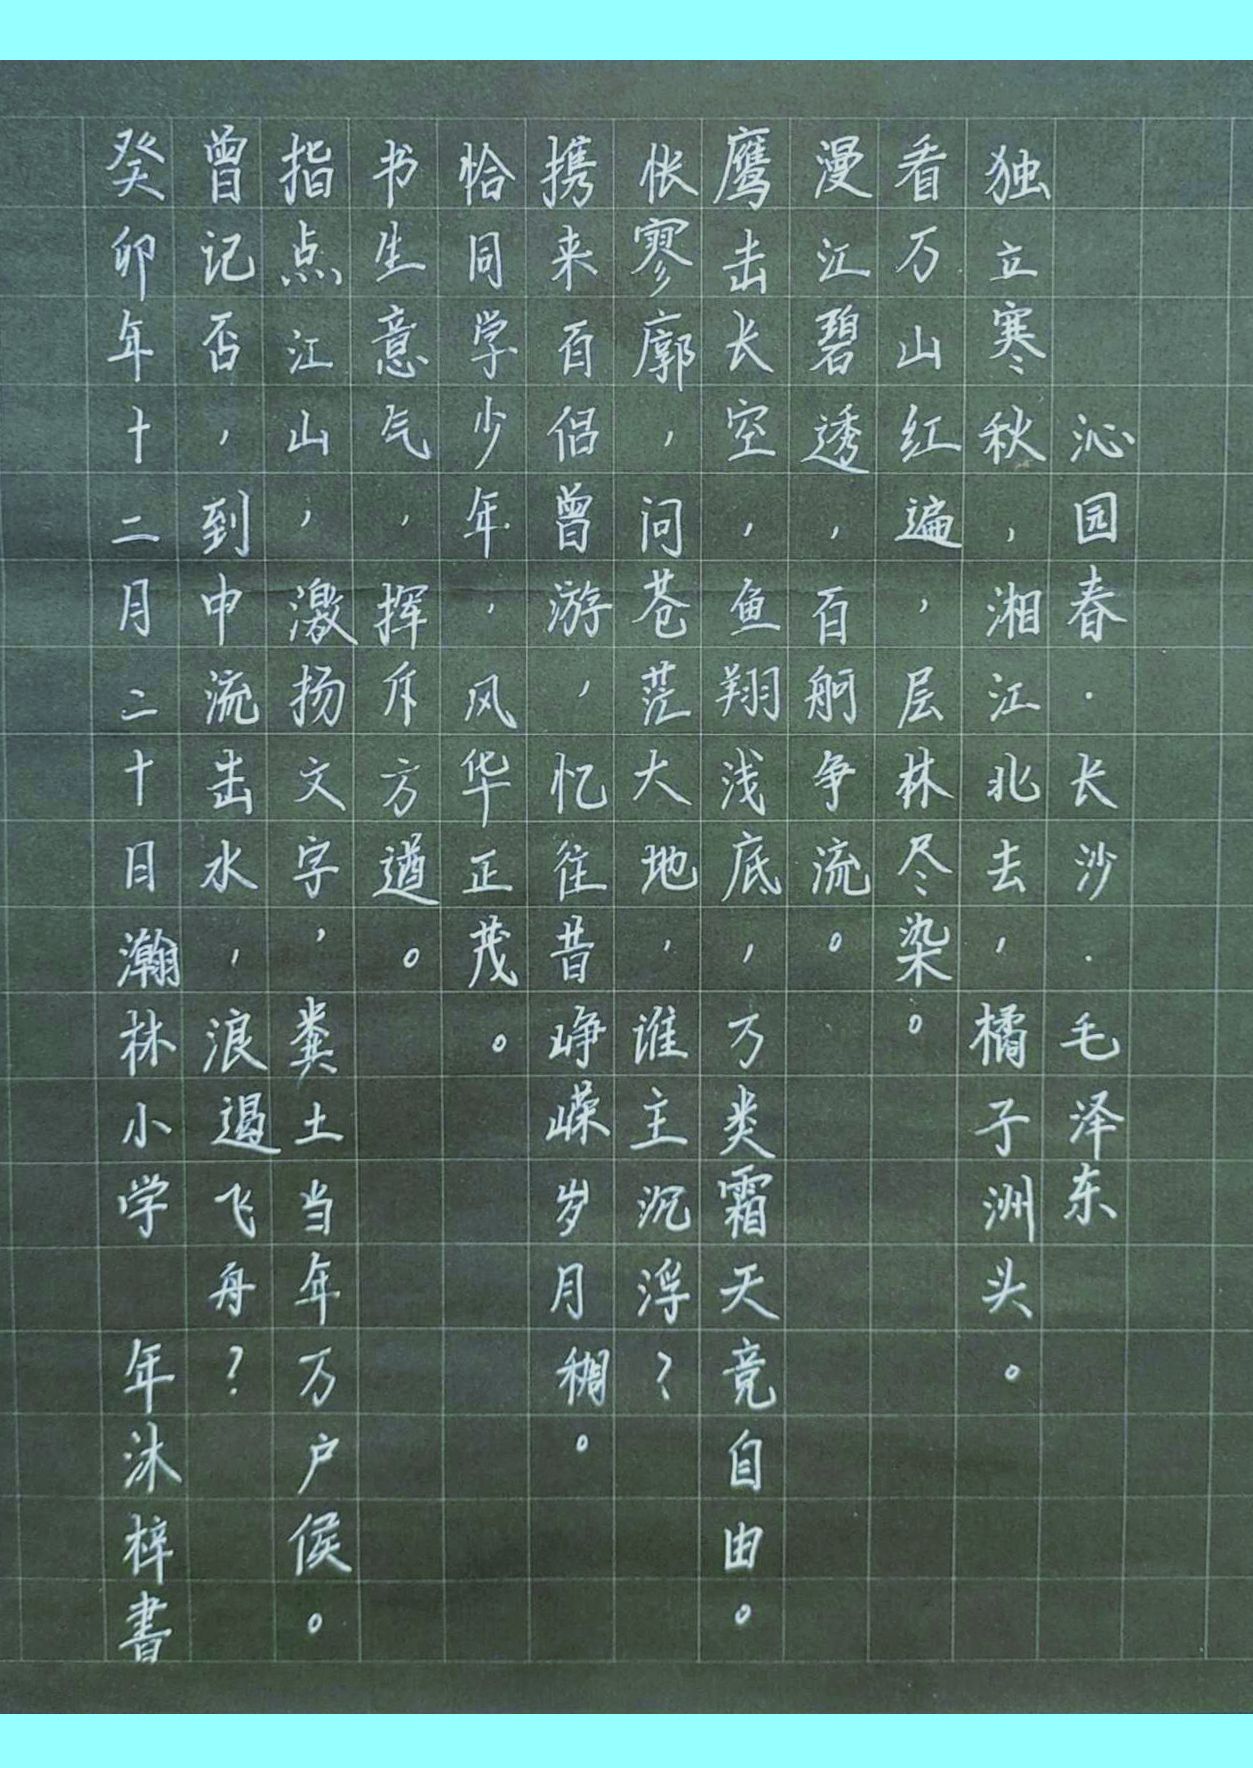 沁园春·长沙·毛泽东
独立寒秋，湘江北去，橘子洲头。
看万山红遍，层林尽染。
漫江碧透，百舸争流。
鹰击长空，鱼翔浅底，万类霜天竞自由。
怅寥廓，问苍茫大地，谁主沉浮？
携来百侣曾游，忆往昔峥嵘岁月稠。
恰同学少年，风华正茂。
书生意气，挥斥方遒。
指点江山，激扬文字，粪土当年万户侯。
曾记否，到中流击水，浪遏飞舟？
癸卯年十二月二十日瀚林小学 年沐梓書